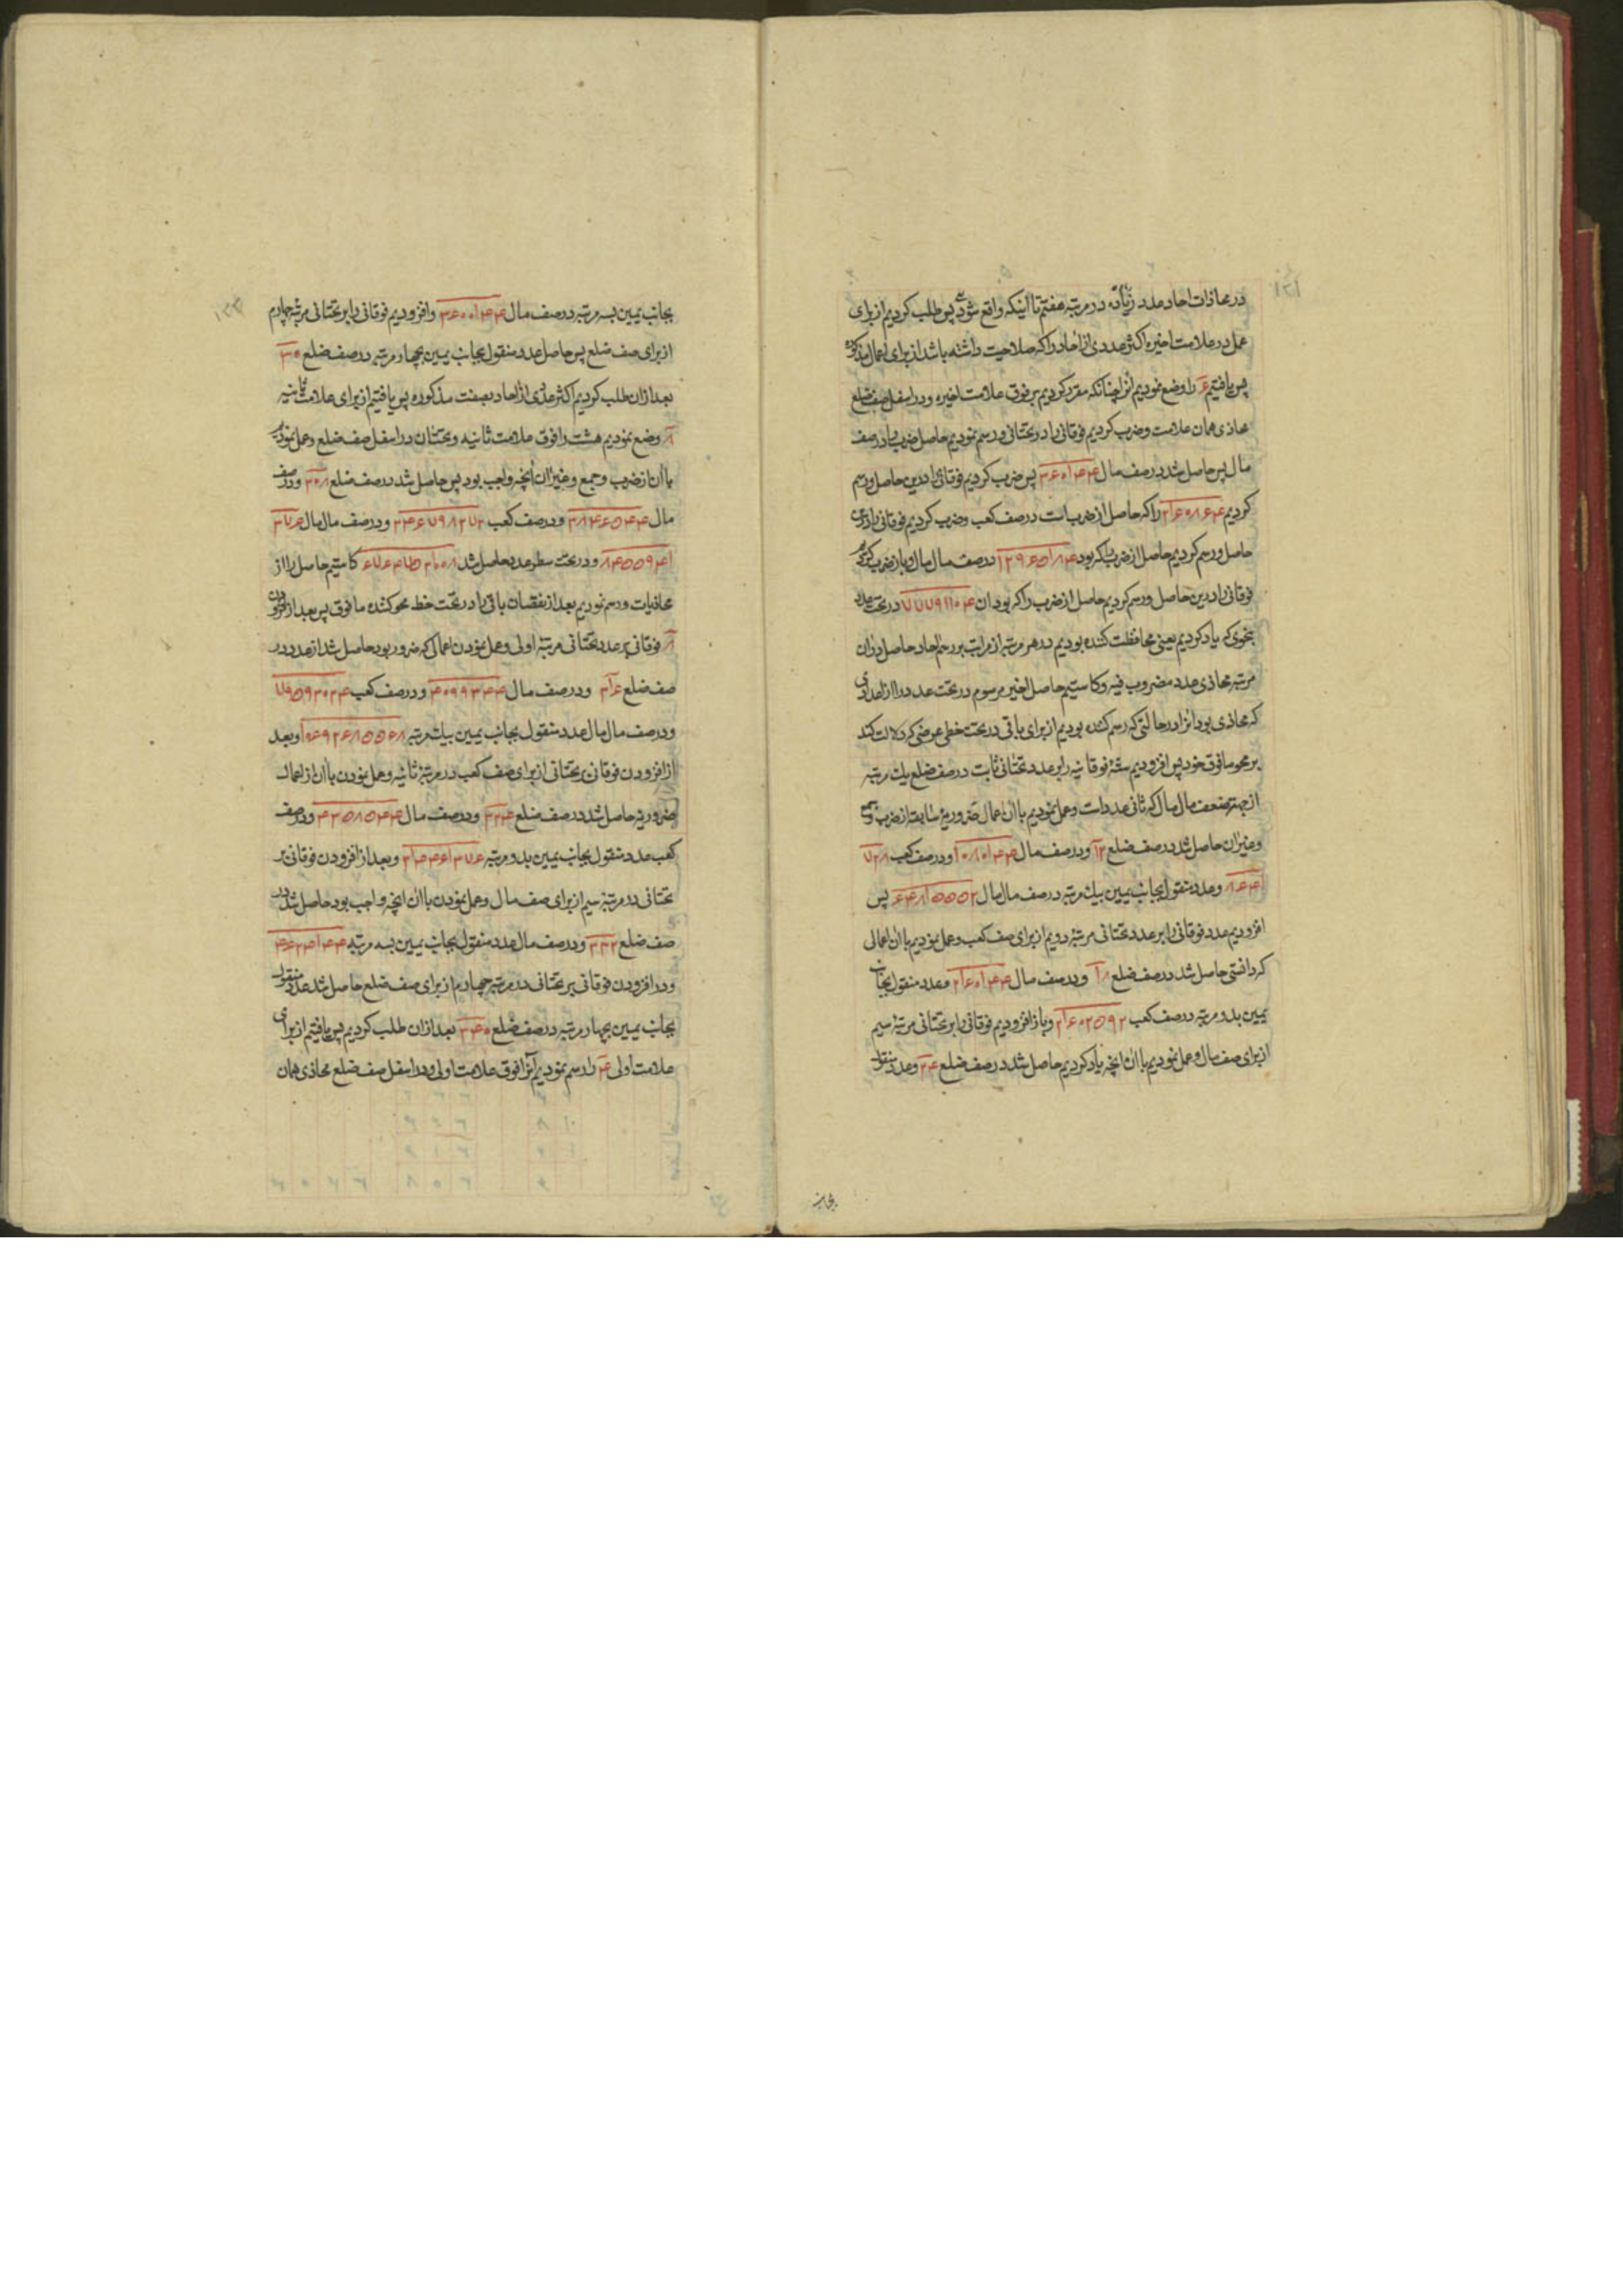 در محاذات احاد عدد زیاده در مرتبه هفتم تا اینکه واقع شود پس طلب کردیم از برای
عمل در علامت اخیره اکثر عددی از احاد را که صلاحیت داشته باشد از برای اعمال مذکوره
پس یافتیم ۶ را وضع نمودیم انرا چنانکه مقرر کردیم بر فوق علامت اخیره و در اسفل صف ضلع
محاذی همان علامت و ضرب کردیم فوقانی را در تحتانی و رسم نمودیم حاصل ضرب را در صف
مال پس حاصل شد در صف مال پس ضرب کردیم فوقانی را درین حاصل و رسم
کردیم را که حاصل از ضرب است در صف کعب و ضرب کردیم فوقانی را درین
حاصل و رسم کردیم حاصل از ضرب را که بود در صف مال مال و باز ضرب کردیم
فوقانی را درین حاصل و رسم کردیم حاصل از ضرب را که بود ان در تحت عدد
بنحوی که یاد کردیم یعنی محافظت کننده بودیم در هر مرتبه از مراتب بر رسم احاد حاصل در ان
مرتبه محاذی عدد مضروب فیه و کاستیم حاصل اخیر مرسوم در تحت عدد را از اعدادی
که محاذی بود انرا در حالتی که رسم کننده بودیم از برای باقی در تحت خطی عرضی که دلالت کند
بر محو مافوق خود پس افزودیم ستهٔ فوقانیه را بر عدد تحتانی ثابت در صف ضلع یک مرتبه
از جهة صف مال مال که ثانی عدد است و عمل نمودیم با ان اعمال ضروریهٔ سابقه از ضرب و جمع
و غیر ان حاصل شد در صف ضلع ۱۲ و در صف مال و در صف کعب
و عدد منقول بجانب یمین بیک مرتبه در صف مال مال پس
افزودیم عدد فوقانی را بر عدد تحتانی مرتبهٔ دویم از برای صف کعب و عمل نمودیم با ان اعمالی
که دانستی حاصل شد در صف ضلع ۱۸ و در صف مال و عدد منقول بجانب
یمین بدو مرتبه در صف کعب و باز افزودیم فوقانی را بر تحتانی مرتبهٔ سیم
از برای صف مال و عمل نمودیم با ان انچه یاد کردیم حاصل شد در صف ضلع ۲۴ و عدد منقول
بجانب
بجانب یمین بسه مرتبه در صف مال و افزودیم فوقانی را بر تحتانی مرتبهٔ چهارم
از برای صف ضلع پس حاصل عدد منقول بجانب یمین بچهار مرتبه در صف ضلع ۳۰
بعد از ان طلب کردیم اکثر عددی از احاد بصفت مذکوره پس یافتیم از برای علامت ثانیه
۸ وضع نمودیم هشت را فوق علامت ثانیه و تحت ان در اسفل صف ضلع و عمل نمودیم
با ان از ضرب و جمع و غیر ان انچه واجب بود پس حاصل شد در صف ضلع ۳۰۸ و در صف
مال و در صف کعب و در صف مال مال
و در تحت سطر عدد حاصل شد کاستیم حاصل را از
محاذیات و رسم نمودیم بعد از نقصان باقی را در تحت خط محو کننده مافوق پس بعد از افزودن
۸ فوقانی بر عدد تحتانی مرتبهٔ اولی و عمل نمودن اعمالی که ضرور بود حاصل شد از عدد در
صف ضلع ۳۱۶ و در صف مال و در صف کعب
و در صف مال مال عدد منقول بجانب یمین بیک مرتبه و بعد
از افزودن فوقانی بر تحتانی از برای صف کعب در مرتبهٔ ثانیه و عمل نمودن با ان از اعمال
ضروریه حاصل شد در صف ضلع ۳۲۴ و در صف مال و در صف
کعب عدد منقول بجانب یمین بدو مرتبه و بعد از افزودن فوقانی بر
تحتانی در مرتبهٔ سیم از برای صف مال و عمل نمودن با ان انچه واجب بود حاصل شد در
صف ضلع ۳۳۲ و در صف مال عدد منقول بجانب یمین بسه مرتبه
و در افزودن فوقانی بر تحتانی در مرتبهٔ چهارم از برای صف ضلع حاصل شد عدد منقول
بجانب یمین بچهار مرتبه در صف ضلع ۳۴۰ بعد از ان طلب کردیم پس یافتیم از برای
علامت اولی ۴ را رسم نمودیم انرا فوق علامت اولی و در اسفل صف ضلع محاذی همان